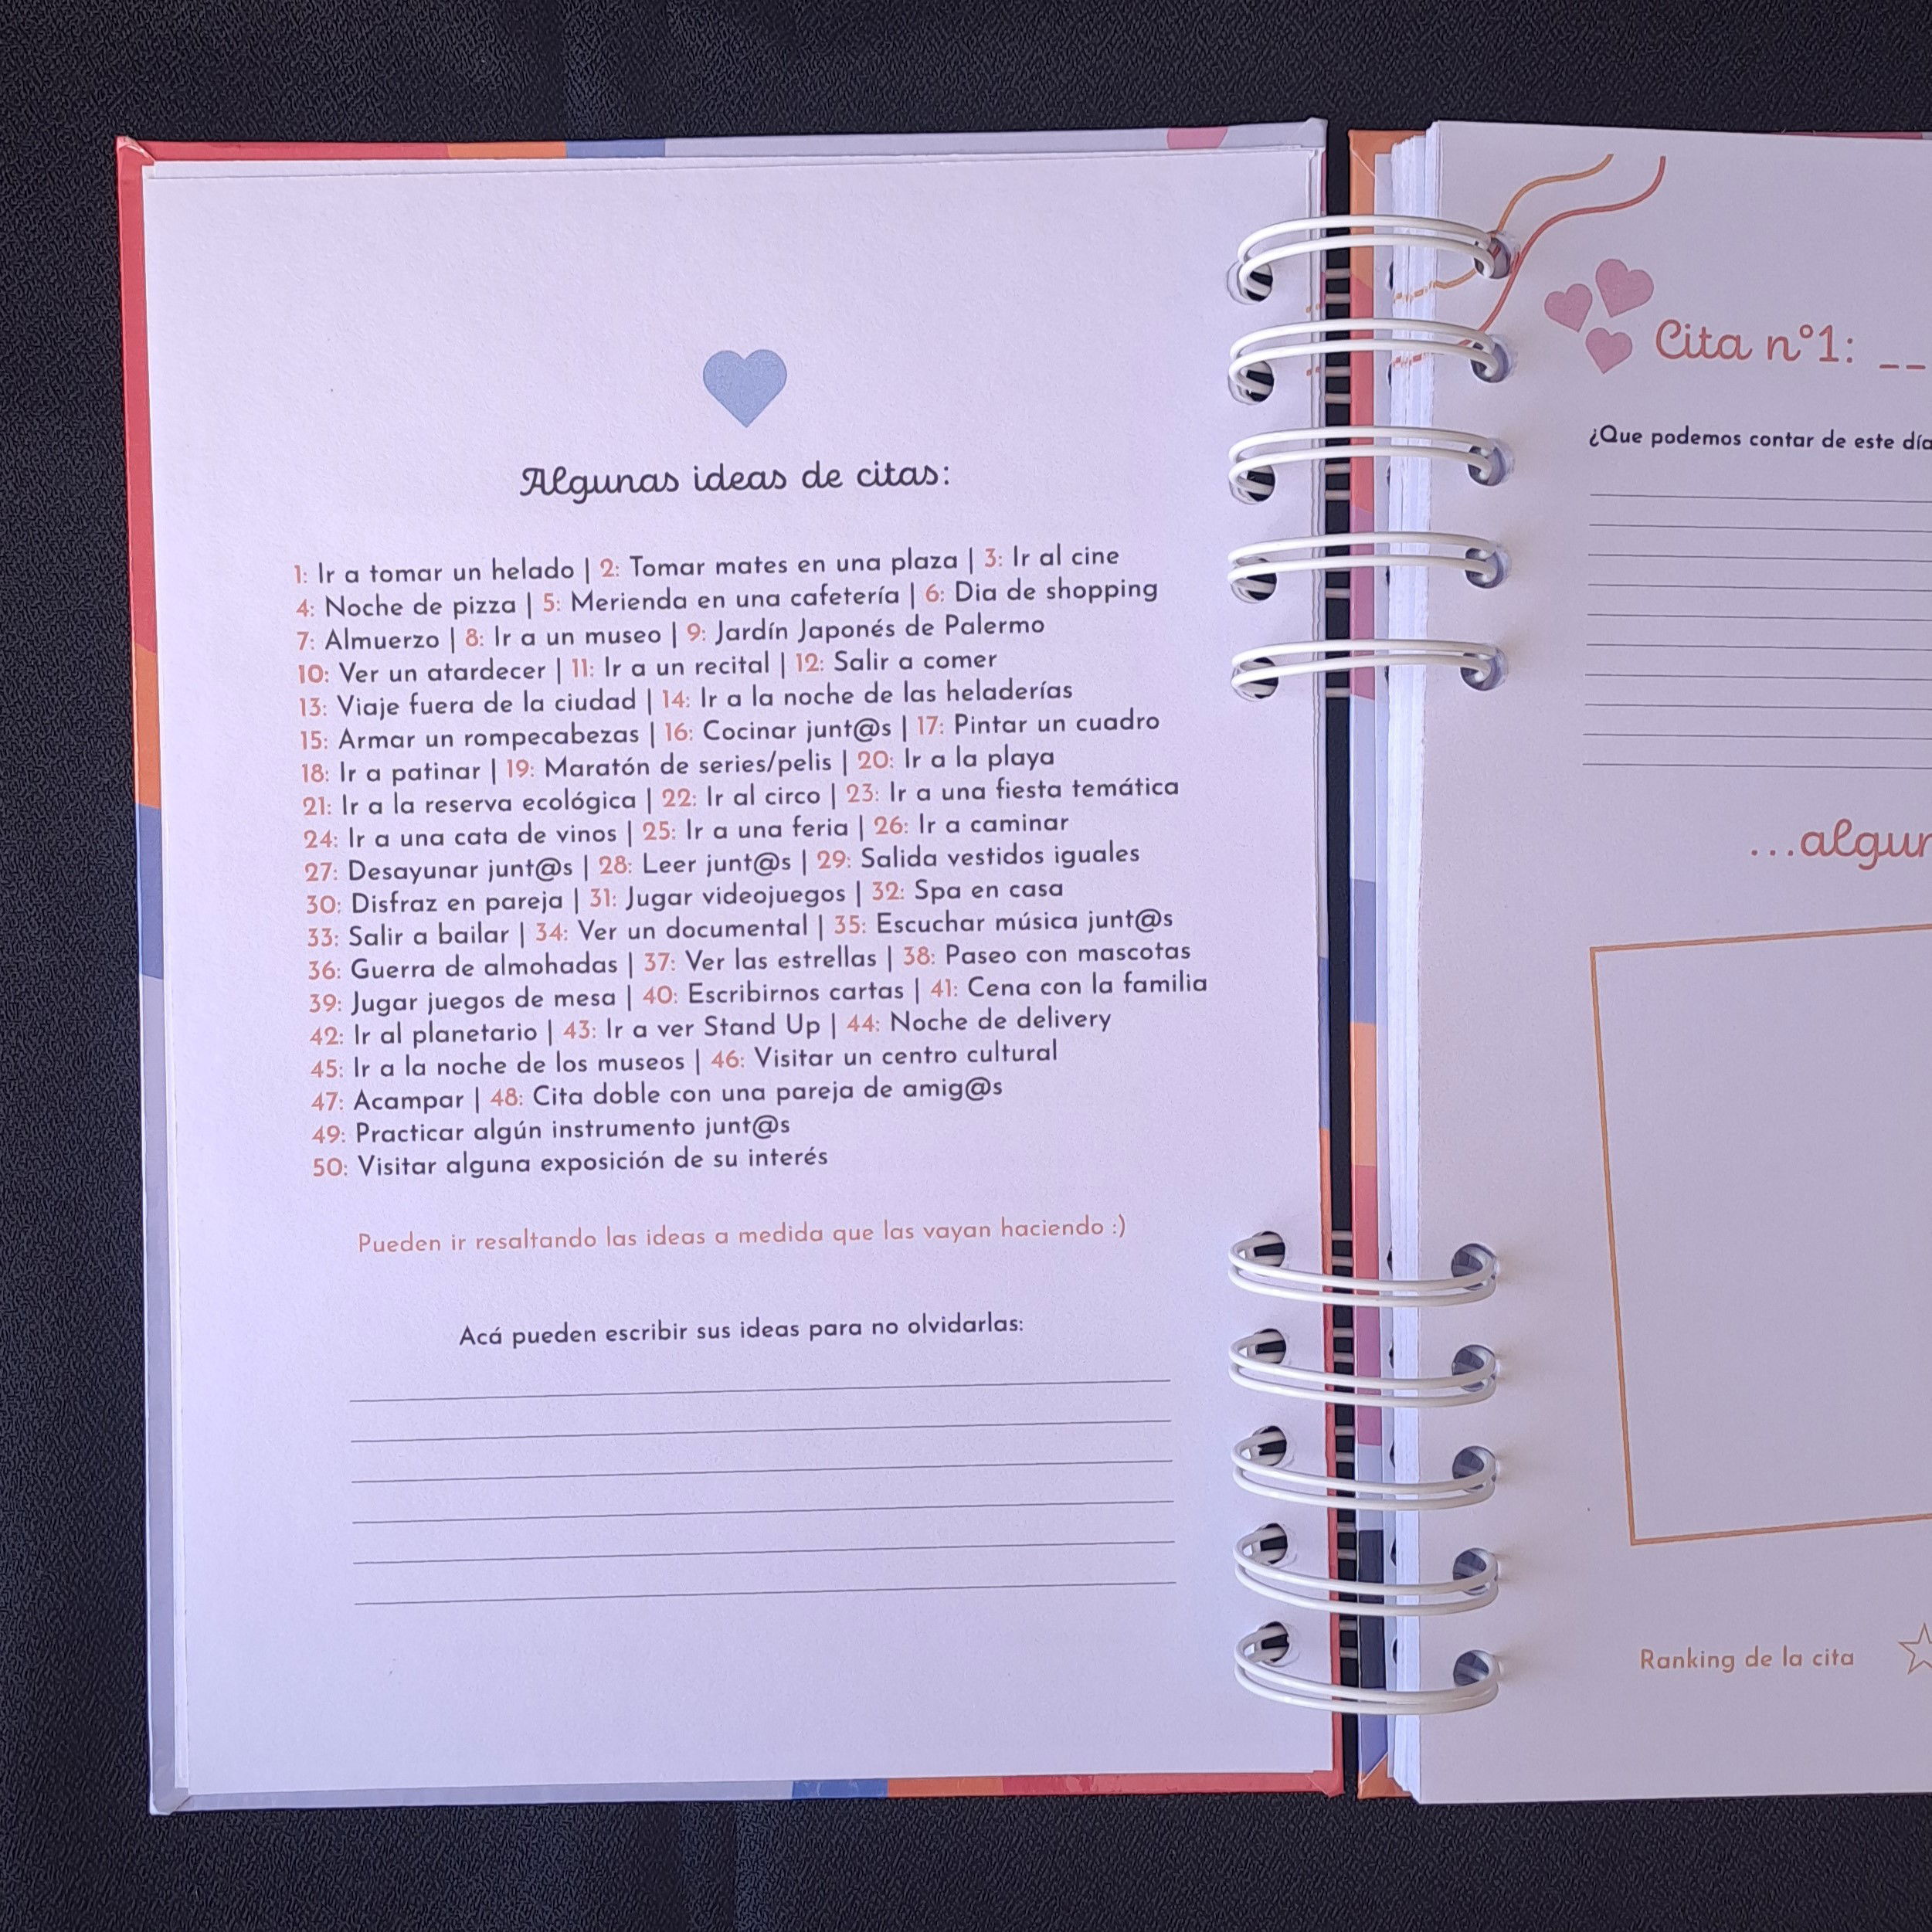 Algunas ideas de citas:
1: Ir a tomar un helado | 2: Tomar mates en una plaza | 3: Ir al cine
4: Noche de pizza | 5: Merienda en una cafetería | 6: Dia de shopping
7: Almuerzo | 8: Ir a un museo | 9: Jardín Japonés de Palermo
10: Ver un atardecer | 11: Ir a un recital | 12: Salir a comer
13: Viaje fuera de la ciudad | 14: Ir a la noche de las heladerías
15: Armar un rompecabezas | 16: Cocinar junt@s | 17: Pintar un cuadro
18: Ir a patinar | 19: Maratón de series/pelis | 20: Ir a la playa
21: Ir a la reserva ecológica | 22: Ir al circo | 23: Ir a una fiesta temática
24: Ir a una cata de vinos | 25: Ir a una feria | 26: Ir a caminar
27: Desayunar junt@s | 28: Leer junt@s | 29: Salida vestidos iguales
30: Disfraz en pareja | 31: Jugar videojuegos | 32: Spa en casa
33: Salir a bailar | 34: Ver un documental | 35: Escuchar música junt@s
36: Guerra de almohadas | 37: Ver las estrellas | 38: Paseo con mascotas
39: Jugar juegos de mesa | 40: Escribirnos cartas | 41: Cena con la familia
42: Ir al planetario | 43: Ir a ver Stand Up | 44: Noche de delivery
45: Ir a la noche de los museos | 46: Visitar un centro cultural
47: Acampar | 48: Cita doble con una pareja de amig@s
49: Practicar algún instrumento junt@s
50: Visitar alguna exposición de su interés
Pueden ir resaltando las ideas a medida que las vayan haciendo :)
Acá pueden escribir sus ideas para no olvidarlas:
Cita n°1: __
¿Que podemos contar de este día
...algun
Ranking de la cita